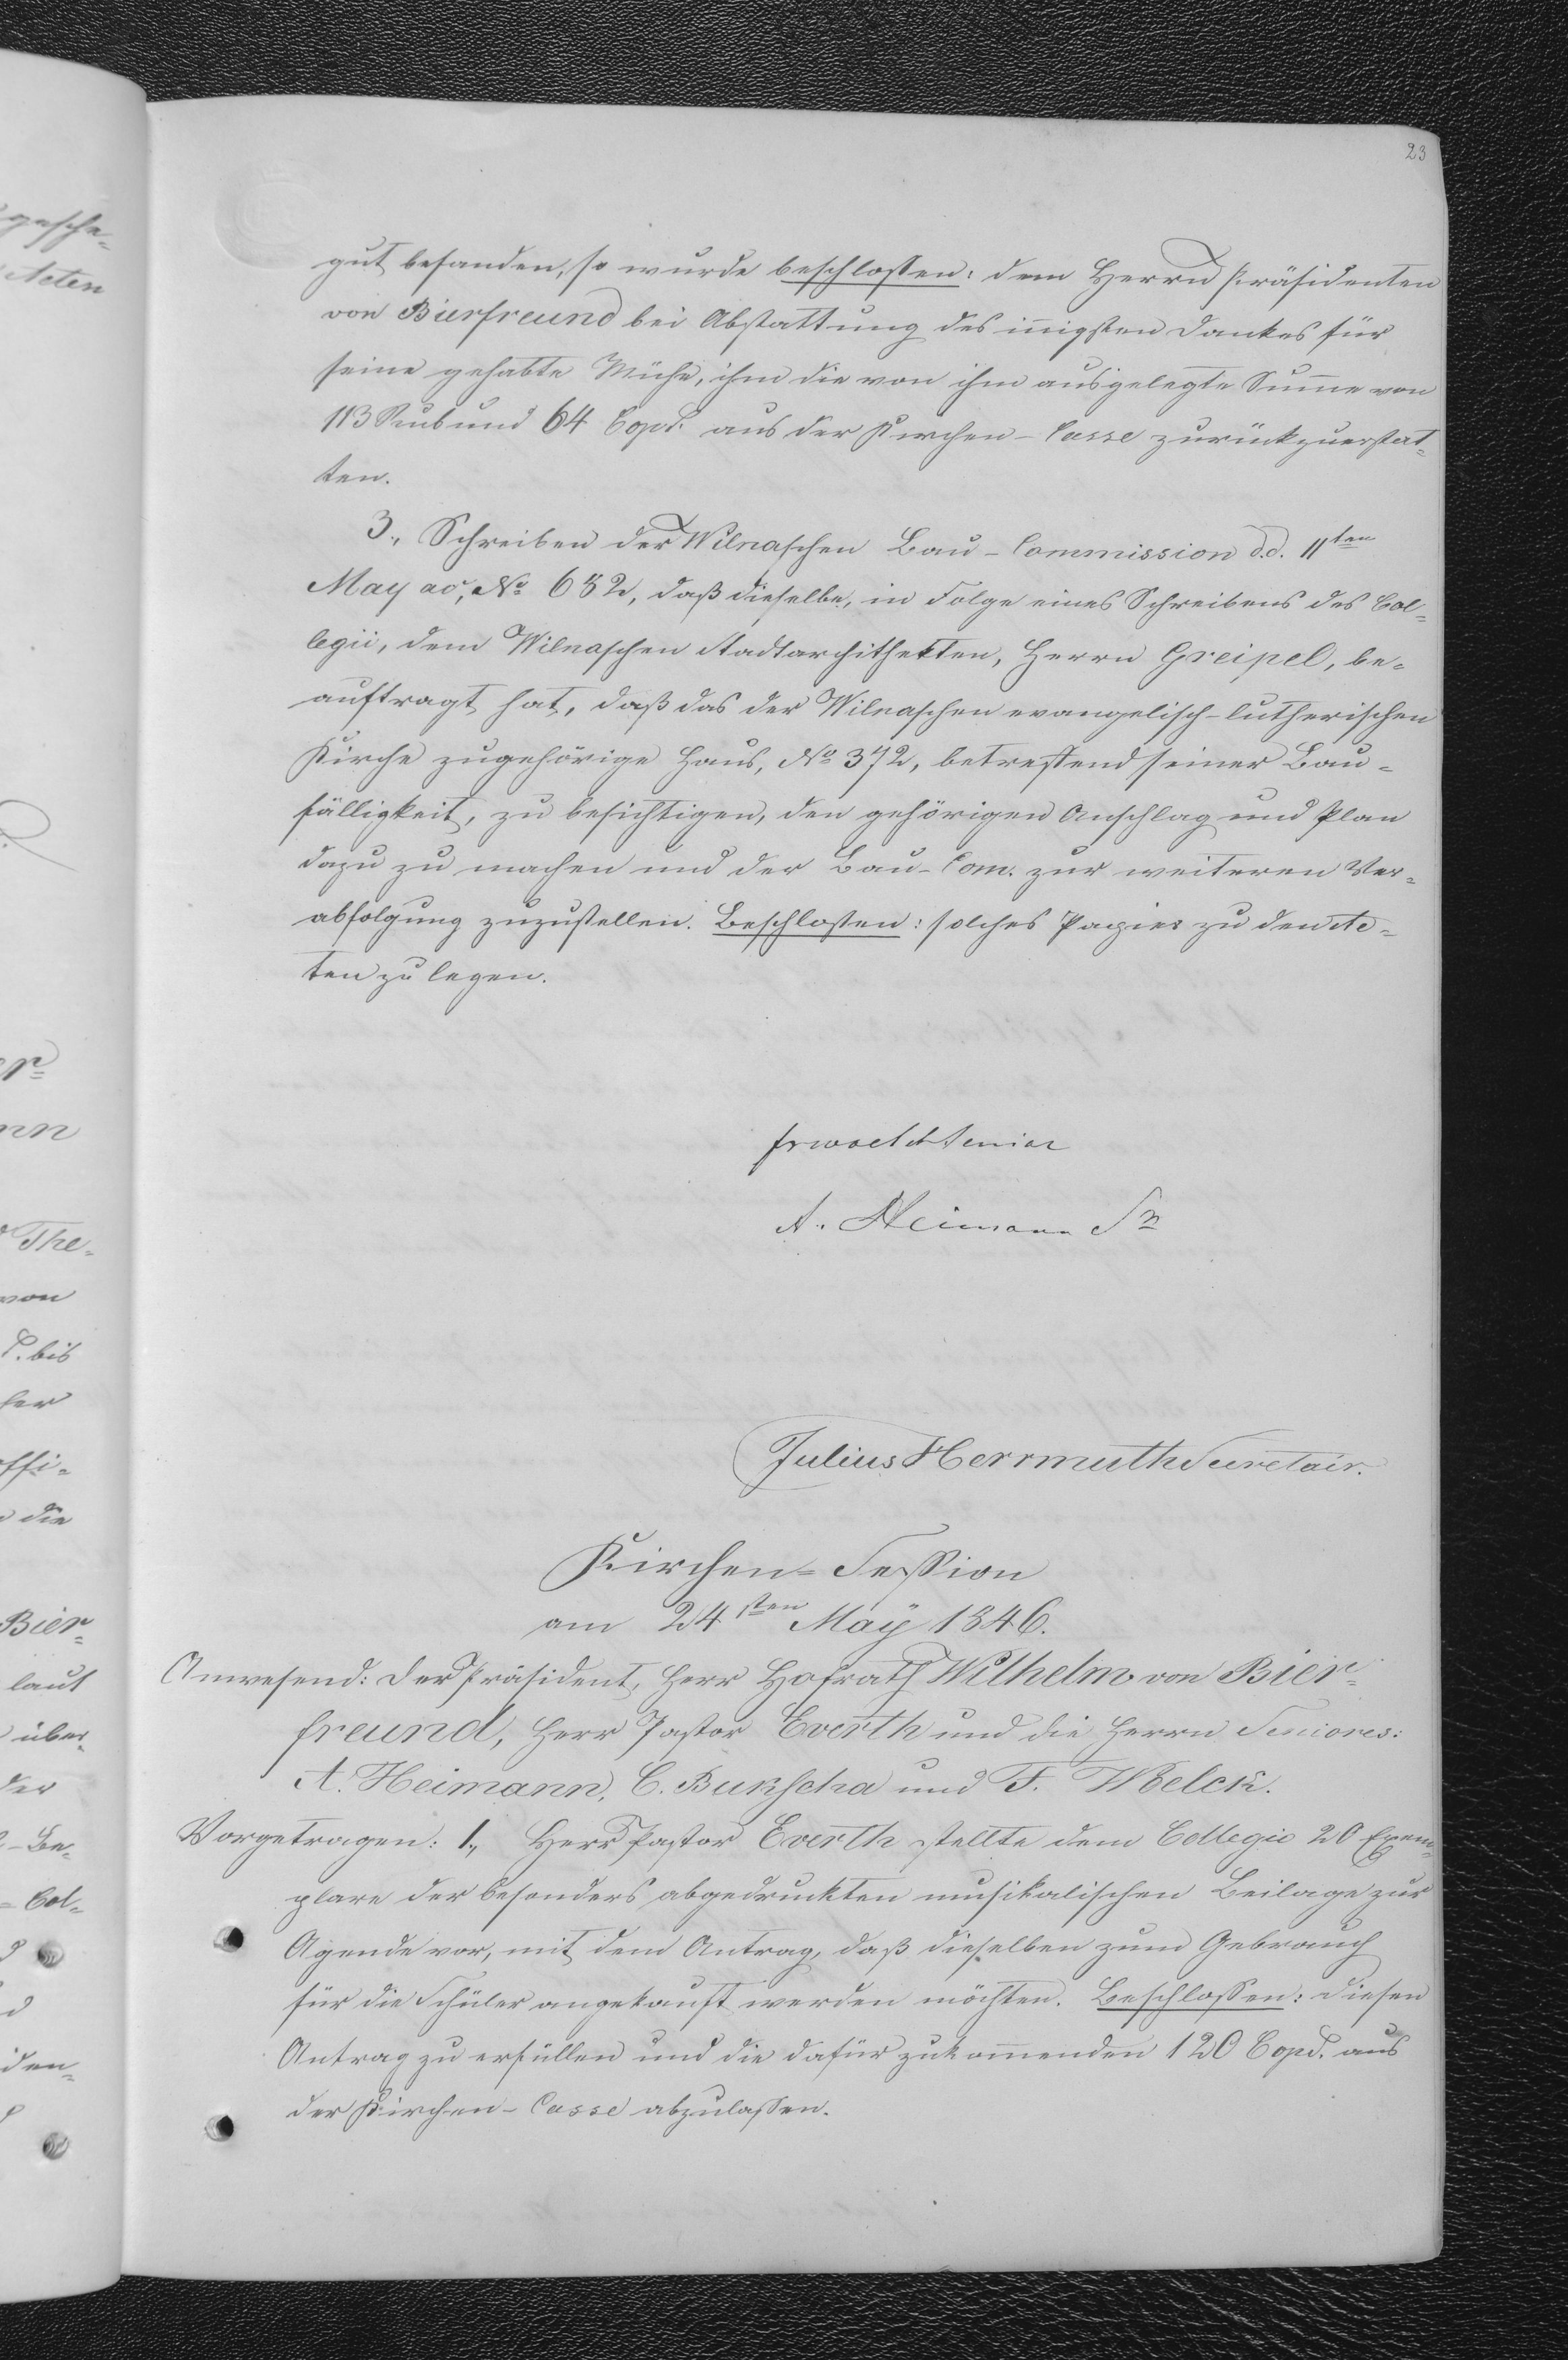 23
gut befanden, so wurde beschlossen: dem Herrn Präsidenten
von Bierfreund bei Abstattung des iñigsten Dankes für
seine gehabte Mühe, ihm die von ihm ausgelegte Sum̃e von
113 Rub und 64 Cop. aus der Kirchen-Casse zurückzuerstat-
ten.
3., Schreiben der Wilnaschen Bau-Commission d.d. 11ten
May ac, No 652, daß dieselbe, in Folge eines Schreibens des Col-
legii, dem Wilnaschen Stadtarchithekten, Herrn Greipel, be-
auftragt hat, daß das der Wilnaschen evangelisch-lutherischen
Kirche zugehörige Haus, No 372, betreffend seiner Bau-
fälligkeit, zu besichtigen, den gehörigen Anschlag und Plan
dazu zu machen und der Bau-Com. zur weiteren Ver-
abfolgung zuzustellen. Beschlossen: solches Papier zu den Ac-
ten zu legen.
A. Heimann Sr
Julius Herrmuth Secretair.
Kirchen-Session
am 24sten May 1846.
Anwesend: Der Präsident, Herr Hofrath Wilhelm von Bier-
freund, Herr Pastor Everth und die Herrn Seniores:
A. Heimann, C. Bukscha und F. Woelck.
Vorgetragen: 1., Herr Pastor Everth stellte dem Collegio 20 Exem-
plare der besonders abgedruckten musikalischen Beilage zur
Agende vor, mit dem Antrag, daß dieselben zum Gebrauch
für die Schüler angekauft werden möchten. Beschlossen: diesen
Antrag zu erfüllen und die dafür zukom̃enden 120 Cop. aus
der Kirchen-Casse abzulassen.